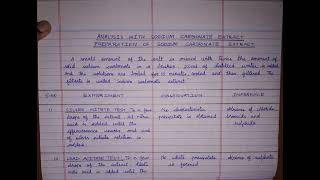 ANALYSIS WITH SODIUM CARBONATE EXTRACT
PREPARATION OF SODIUM CARBONATE EXTRACT
A small amount of the salt is mixed with twice the amount of
solid sodium carbonate in a beaker. 20ml of distilled water is added
and the solutions are boiled for 10 minutes cooled and then filtered. The
filtrate is called sodium carbonate extract.
S.No EXPERIMENT OBSERVATION INFERENCE
1) SILVER NITRATE TEST: To a few No characteristic absence of chloride
drops of the extract dil nitric precipitate is obtained bromide and sulphide
acid is added until the
effervescence ceases and 1ml
of silver nitrate solution is
added.
2) LEAD ACETATE TEST: To a few No white precipitate absence of sulphate
drops of the extract dilute is formed
acid is added until the